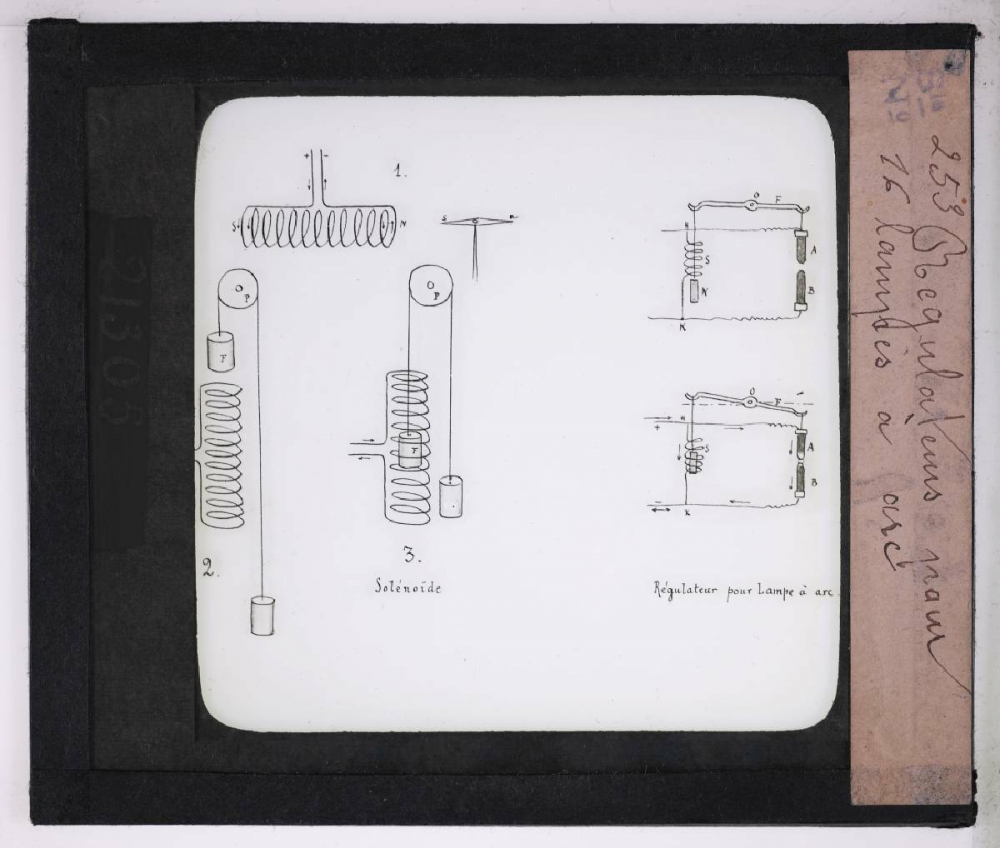 1.
+ -
S N
s n
P
F
P
F
2.
3.
Solénoïde
O F
H
S
A
N
B
K
O F
H
+
S
A
B
-
K
Régulateur pour Lampe à arc
Sie 253 Régulateurs pour
No 16 lampes à arc